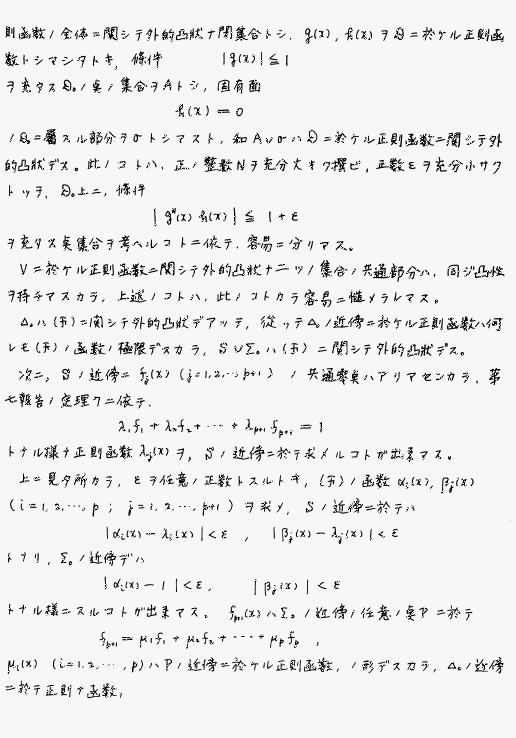 則函數ノ全体ニ関シテ外的凸状ナ閉集合トシ、g(x), h(x) ヲ D ニ於ケル正則函
數トシマシタトキ、條件 |g(x)| ≦ 1
ヲ充タス D₀ ノ点ノ集合ヲ A トシ、固有面
h(x) = 0
ノ D₀ ニ屬スル部分ヲ σ トシマスト、和 A∪σ ハ D ニ於ケル正則函數ニ関シテ外
的凸状デス。此ノコトハ、正ノ整數 N ヲ充分大キク撰ビ、正數 ε ヲ充分小サク
トッテ、D₀ 上ニ、條件
|gᴺ(x) h(x)| ≦ 1 + ε
ヲ充タス点集合ヲ考ヘルコトニ依テ、容易ニ分リマス。
V ニ於ケル正則函數ニ関シテ外的凸状ナ二ツノ集合ノ共通部分ハ、同ジ凸性
ヲ持チマスカラ、上述ノコトハ、此ノコトカラ容易ニ慥メラレマス。
Δ₀ ハ (F) ニ関シテ外的凸状デアッテ、從ッテ Δ₀ ノ近傍ニ於ケル正則函數ハ何
レモ (F) ノ函數ノ極限デスカラ、S∪Σ₀ ハ (F) ニ関シテ外的凸状デス。
次ニ、S ノ近傍ニ fⱼ(x) (j=1,2,…,p+1) ノ共通零点ハアリマセンカラ、第
七報告ノ定理ク二依テ、
λ₁f₁ + λ₂f₂ + … + λₚ₊₁fₚ₊₁ = 1
トナル様ナ正則函數 λⱼ(x) ヲ、S ノ近傍ニ於テ求メルコトガ出来マス。
上ニ見タ所カラ、ε ヲ任意ノ正數トスルトキ、(F) ノ函數 αᵢ(x), βⱼ(x)
(i=1,2,…,p ; j=1,2,…,p+1) ヲ求メ、S ノ近傍ニ於テハ
|αᵢ(x) − λᵢ(x)| < ε , |βⱼ(x) − λⱼ(x)| < ε
トナリ、Σ₀ ノ近傍デハ
|αᵢ(x) − 1| < ε, |βⱼ(x)| < ε
トナル様ニスルコトガ出来マス。 fₚ₊₁(x) ハ Σ₀ ノ近傍ノ任意ノ点 P ニ於テ
fₚ₊₁ = μ₁f₁ + μ₂f₂ + … + μₚfₚ ,
μᵢ(x) (i=1,2,…,p) ハ P ノ近傍ニ於ケル正則函數, ノ形デスカラ、Δ₀ ノ近傍
ニ於テ正則ナ函數,